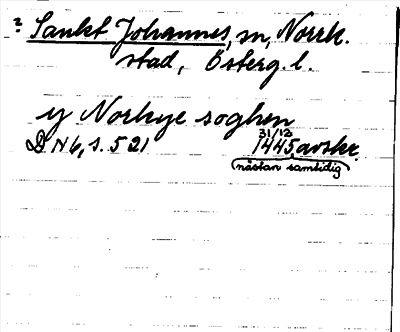 ? Sankt Johannes, sn, Norrk.
stad, Österg. l.
y Norkye soghen
31/12
DN 6, s. 521 1445 avskr.
(nästan samtidig)